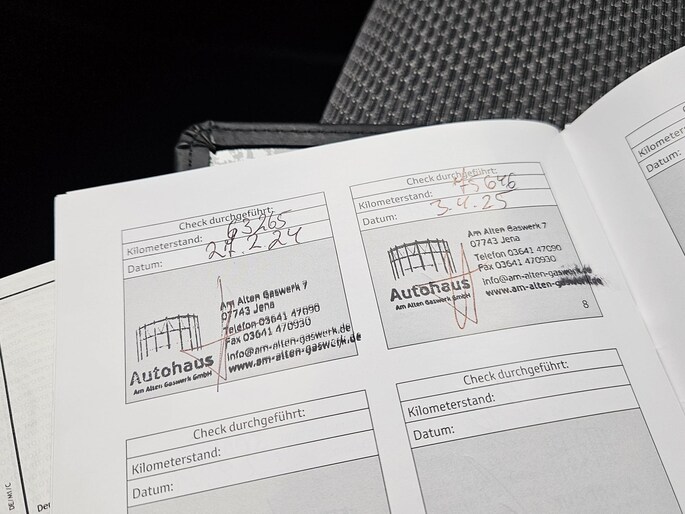 Check durchgeführt:
Kilometerstand: 63265
Datum: 27.2.24
Am Alten Gaswerk 7
07743 Jena
Telefon 03641 47090
Fax 03641 470930
info@am-alten-gaswerk.de
www.am-alten-gaswerk.de
Autohaus
Am Alten Gaswerk GmbH
Check durchgeführt:
Kilometerstand: 75646
Datum: 3.4.25
Am Alten Gaswerk 7
07743 Jena
Telefon 03641 47090
Fax 03641 470930
info@am-alten-gaswerk.de
www.am-alten-gaswerk.de
Autohaus
Am Alten Gaswerk GmbH
8
Check durchgeführt:
Kilometerstand:
Datum:
Check durchgeführt:
Kilometerstand:
Datum:
Kilometerstand:
Datum: